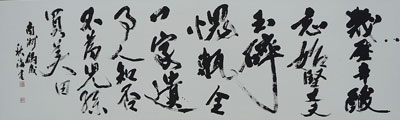 幾歴辛酸
志始堅丈夫
玉碎
愧甎全
一家遺
事人知否
不為兒孫
買美田
南洲偶成